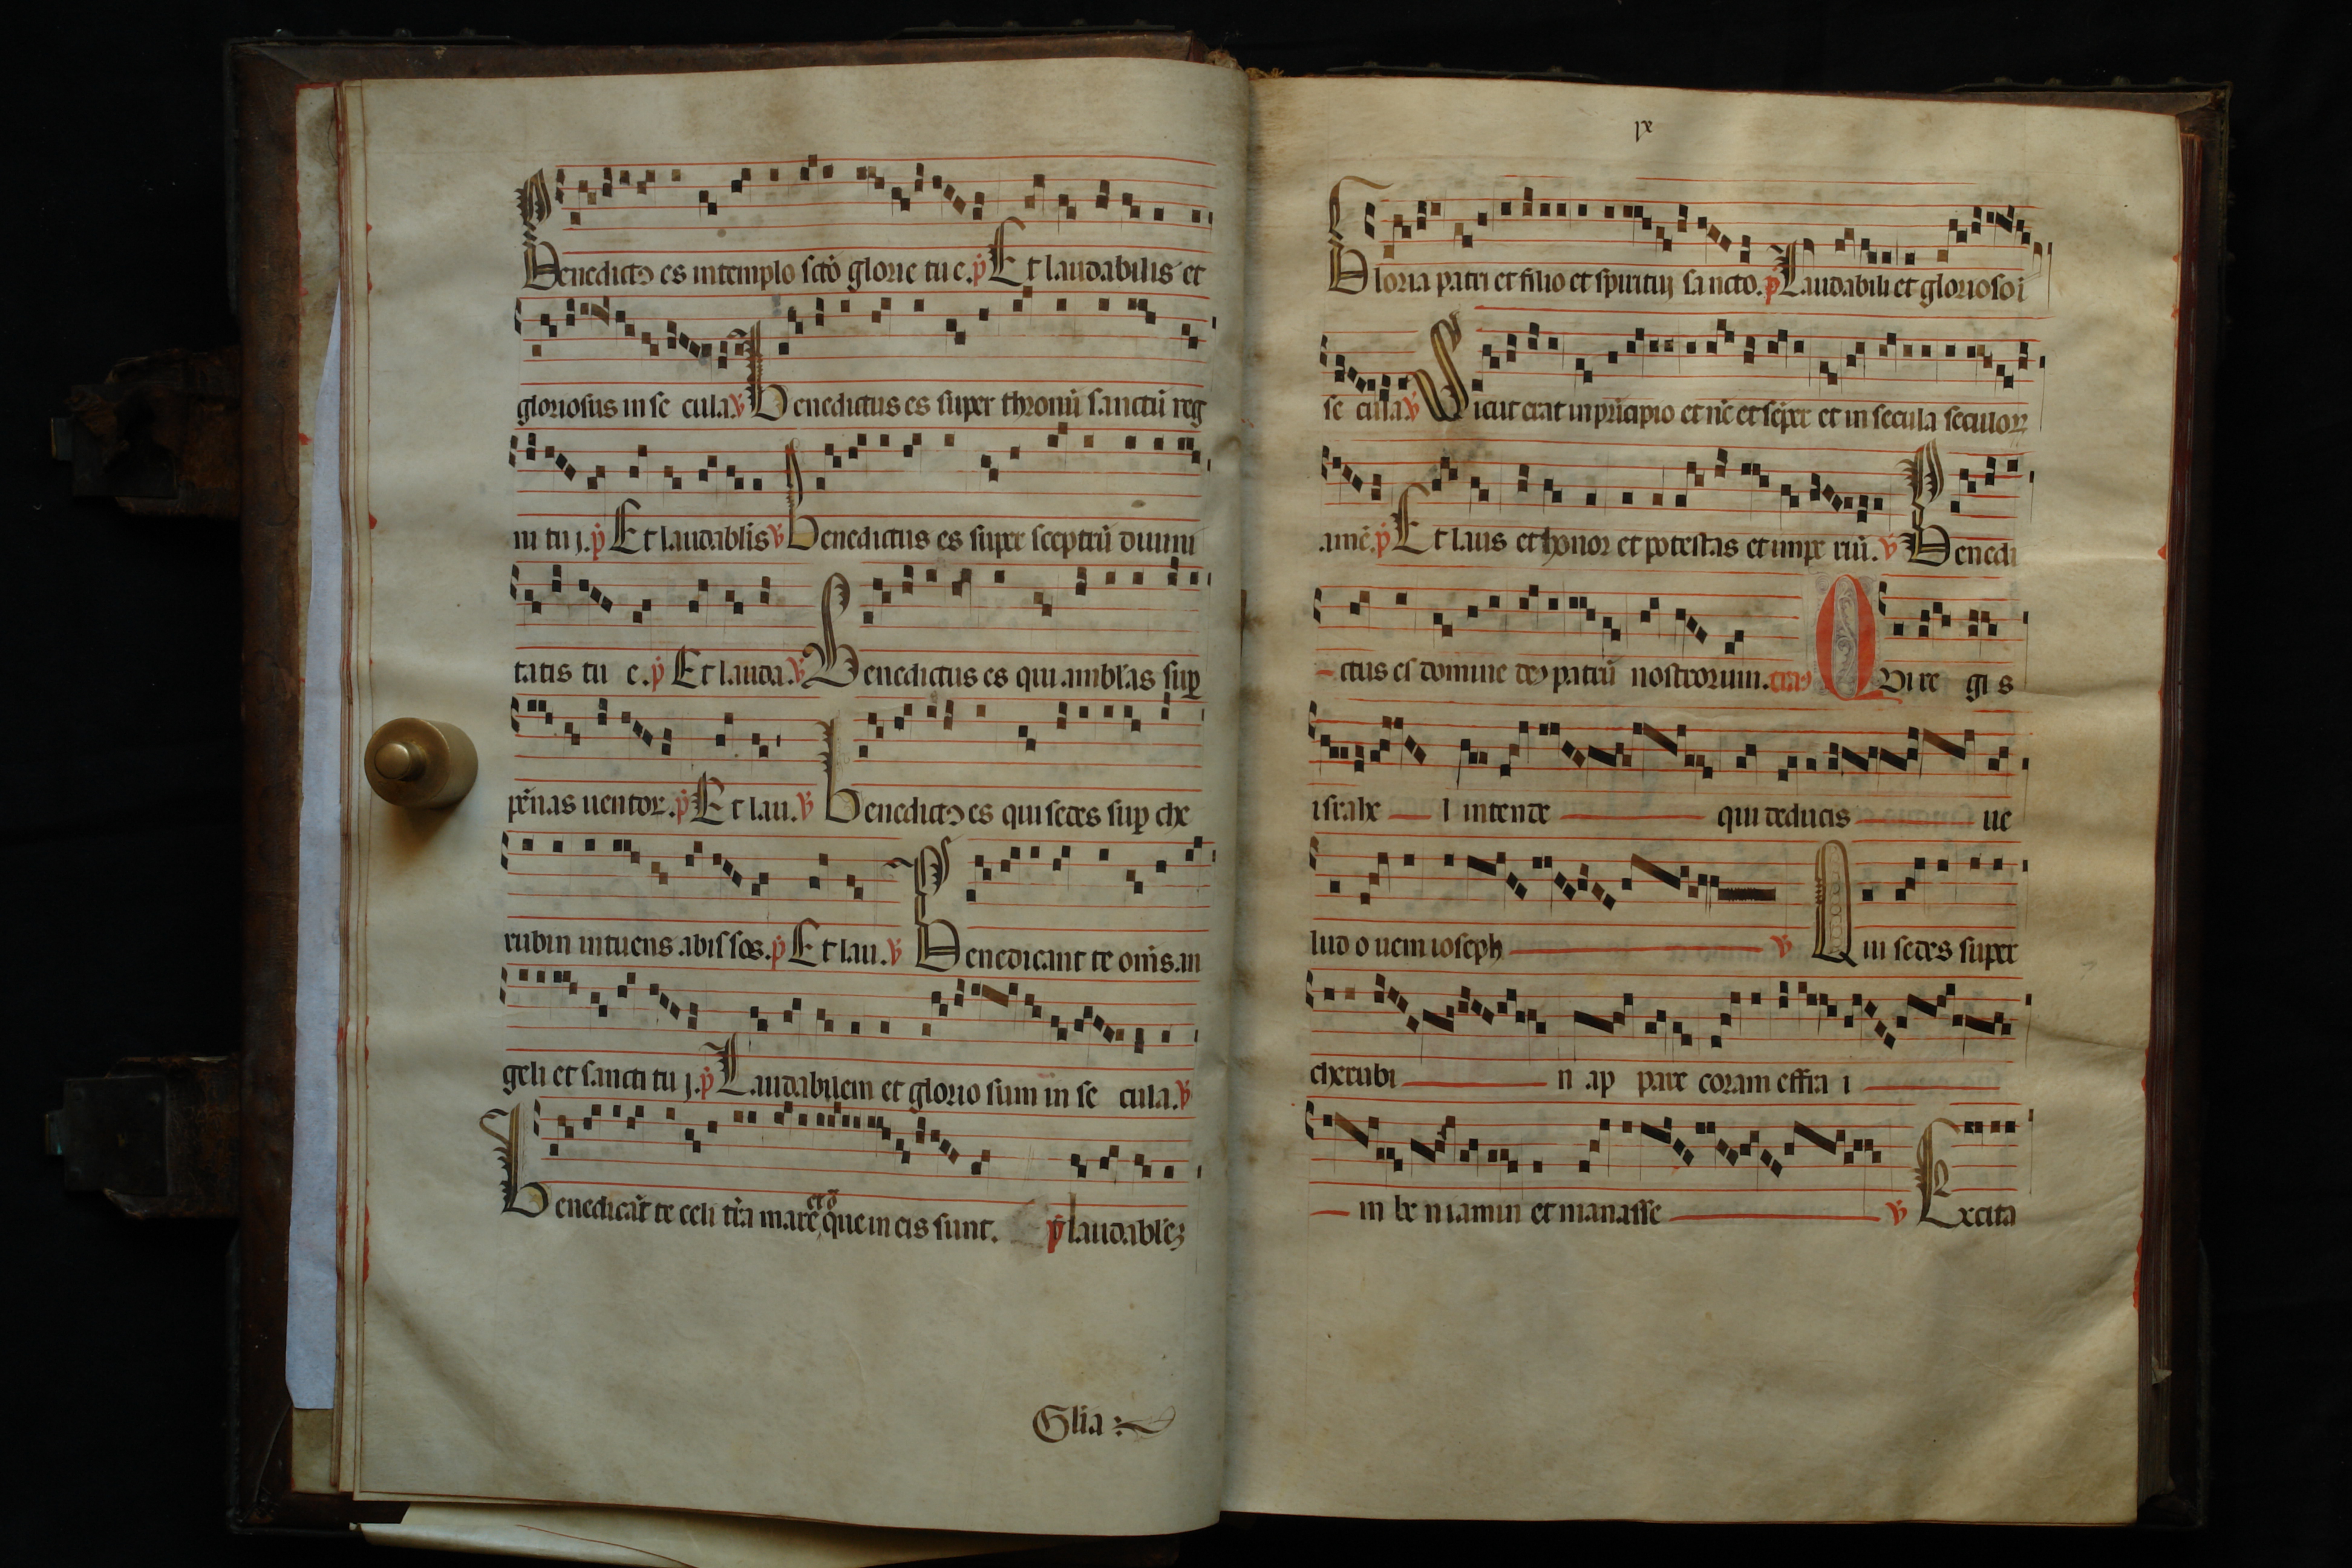 Benedictꝰ es in templo scto glorie tu e. p̄ Et laudabilis et
gloriosus in se cula. v̄ Benedictus es super thronū sanctū reg
ni tu j. p̄ Et laudablis v̄ Benedictus es super sceptrū diuini
tatis tu e. p̄ Et lauda. v̄ Benedictus es qui amblas suꝑ
pēnas uentoꝝ. p̄ Et lau. v̄ Benedictꝰ es qui sedes suꝑ che
rubin intuens abissos. p̄ Et lau. v̄ Benedicant te omīs an
geli et sancti tu j. p̄ Laudabilem et glorio sum in se cula. v̄
Benedicāt te celi tr̄a mare et oī que in eis sunt. p̄ laudableꝫ
Glīa
ix
Gloria patri et filio et spiritui sa ncto. p̄ Laudabili et glorioso i
se cula v̄ Sicut erat in pricipio et nc̄ et sēper et in secula seculoꝝ
amē. p̄ Et laus et honor et potestas et impe riū. v̄ Benedi
ctus es domine deꝰ patrū nostrorum. Qui re gi s
israhe l intende qui deducis ue
lud o uem ioseph v̄ Qui sedes super
cherubi n ap pare coram effra i
m be niamin et manasse v̄ Excita